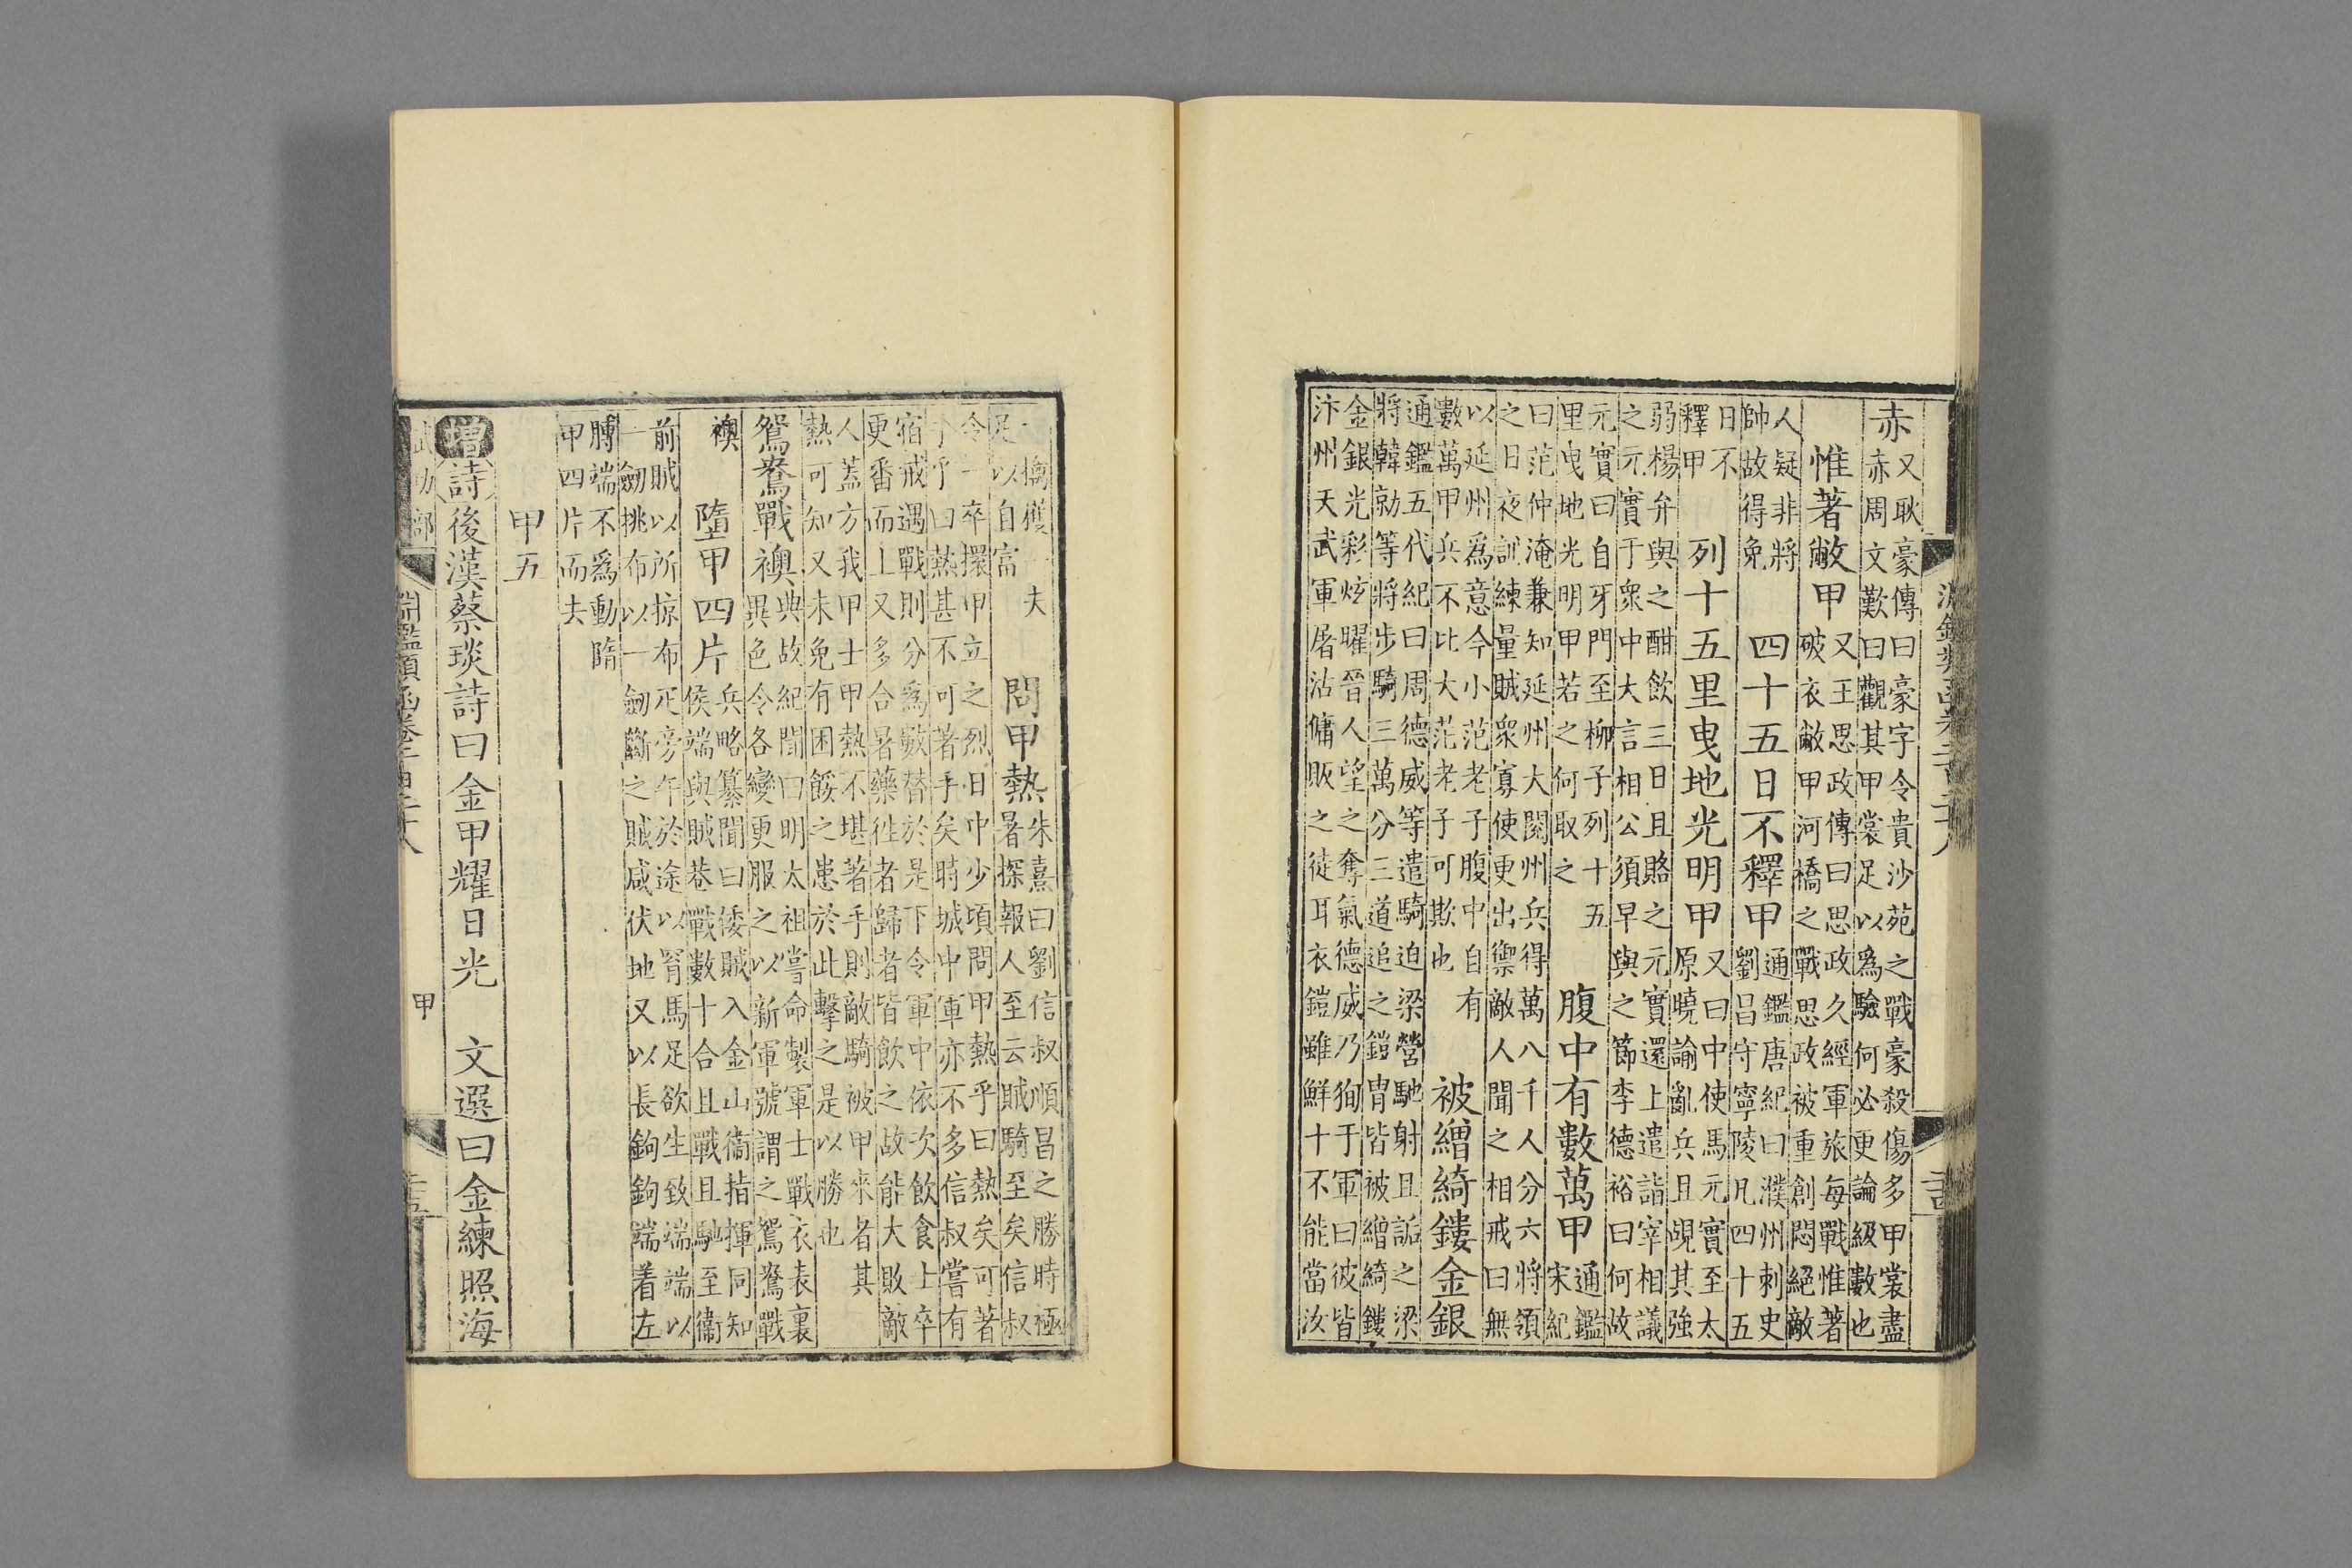 赤
又耿豪傳曰豪字令貴沙苑之戰豪殺傷多甲裳盡
赤周文歎曰觀其甲裳足以為驗何必更論級數也
惟著敝甲
又王思政傳曰思政久經軍旅每戰惟著
破衣敝甲河橋之戰思政被重創悶絕敵
人疑非將
帥故得免
四十五日不釋甲
通鑑唐紀曰濮州刺史
劉昌守寧陵凡四十五
日不
釋甲
列十五里曳地光明甲
又曰中使馬元實至太
原曉諭亂兵且覘其強
弱楊弁與之酣飲三日且賂之元實還上遣詣宰相議
之元實于衆中大言相公須早與之節李德裕曰何故
元實曰自牙門至柳子列十五
里曳地光明甲若之何取之
腹中有數萬甲
通鑑
宋紀
曰范仲淹兼知延州大閱州兵得萬八千人分六將領
之日夜訓練量賊衆寡使更出禦敵人聞之相戒曰無
以延州為意今小范老子腹中自有
數萬甲兵不比大范老子可欺也
被繒綺鏤金銀
通鑑五代紀曰周德威等遣騎迫梁營馳射且詬之梁
將韓勍等將步騎三萬分三道追之鎧冑皆被繒綺鏤
金銀光彩炫曜晉人望之奪氣德威乃狥于軍曰彼皆
汴州天武軍屠沽傭販之徒耳衣鎧雖鮮十不能當汝
一擒獲一夫
足以自富
問甲熱
朱熹曰劉信叔順昌之勝時極
暑探報人至云賊騎至矣信叔
令一卒擐甲立之烈日中少頃問甲熱乎曰熱矣可著
手乎曰熱甚不可著手矣時城中軍亦不多信叔嘗有
宿戒遇戰則分為數替於是下令軍中依次飲食上卒
更番而上又多合暑藥往者歸者皆飲之故能大敗敵
人蓋方我甲士甲熱不堪著手則敵騎被甲來者其
熱可知又未免有困餒之患於此擊之是以勝也
鴛鴦戰襖
典故紀聞曰明太祖嘗命製軍士戰衣表裏
異色令各變更服之以新軍號謂之鴛鴦戰
襖
墮甲四片
兵略纂聞曰倭賊入金山衞指揮同知
侯端與賊巷戰數十合且戰且馳至衞
前賊以所掠布疋旁午於途以罥馬足欲生致端端以
一劒挑布以一劒斷之賊咸伏地又以長鉤鉤端着左
膊端不為動隋
甲四片而去
甲五
增詩後漢蔡琰詩曰金甲耀日光　文選曰金練照海
淵鑑類函卷二百二十八
甲